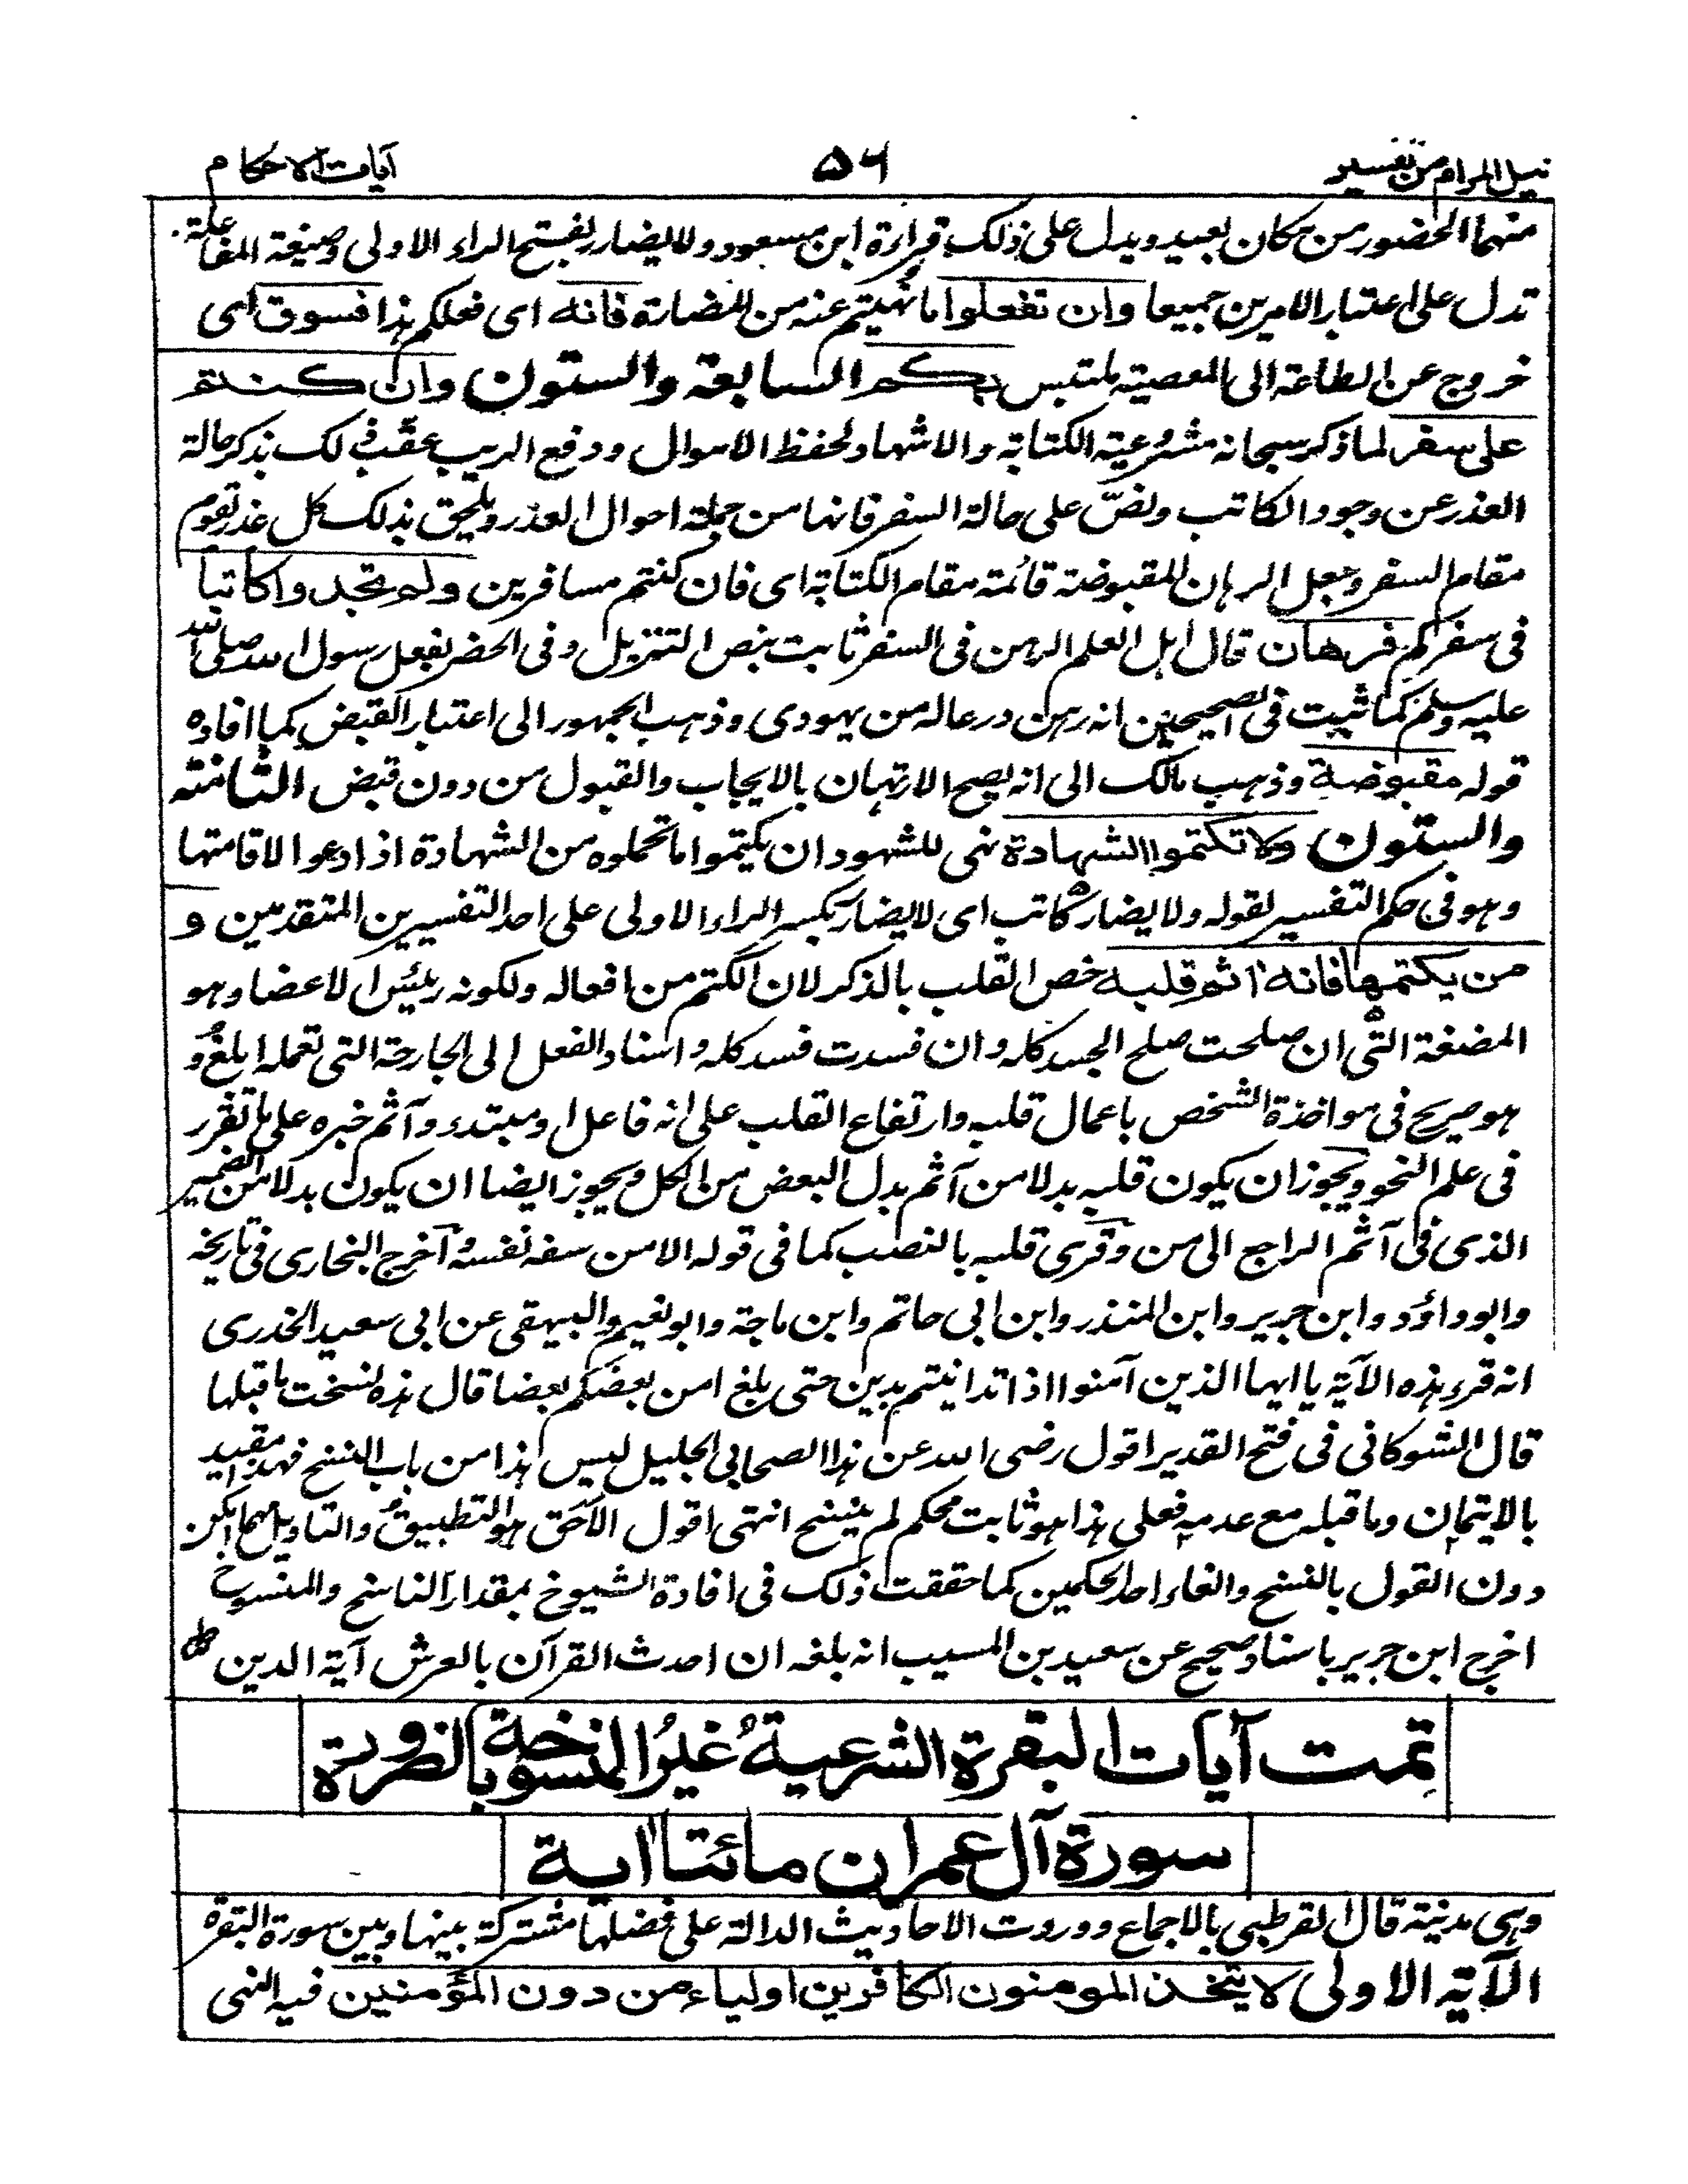 نيل المرام من تفسير
٥٦
آيات الاحكام
منهما الحضور من مكان بعيد ويدل على ذلك قراءة ابن مسعود ولا يضارر بفتح الراء الاولى وصيغة المفاعلة
تدل على اعتبار الامرين جميعا وان تفعلوا ما نهيتم عنه من المضارة فانه اى فعلكم هذا فسوق اى
خروج عن الطاعة الى المعصية ملتبس بكم السابعة والستون وان كنتم
على سفر لما ذكر سبحانه مشروعية الكتابة والاشهاد لحفظ الاموال ودفع الريب عقب ذلك بذكر حالة
العذر عن وجود الكاتب ونص على حالة السفر فانها من جملة احوال العذر ويلحق بذلك كل عذر تقوم
مقام السفر وجعل الرهان المقبوضة قائمة مقام الكتابة اى فان كنتم مسافرين ولم تجدوا كاتبا
فى سفركم فرهان قال اهل العلم الرهن فى السفر ثابت بنص التنزيل وفى الحضر بفعل رسول الله صلى الله
عليه وسلم كما ثبت فى الصحيحين انه رهن درعا له من يهودى وذهب الجمهور الى اعتبار القبض كما افاده
قوله مقبوضة وذهب مالك الى انه يصح الارتهان بالايجاب والقبول من دون قبض الثامنة
والستون ولا تكتموا الشهادة نهى للشهود ان يكتموا ما تحملوه من الشهادة اذا ادعوا لاقامتها
وهو فى حكم التفسير لقوله ولا يضار كاتب اى لا يضارر بكسر الراء الاولى على احد التفسيرين المتقدمين و
من يكتمها فانه اثم قلبه خص القلب بالذكر لان الكتم من افعاله ولكونه رئيس الاعضا وهو
المضغة التى ان صلحت صلح الجسد كله وان فسدت فسد كله واسناد الفعل الى الجارحة التى تعمله ابلغ و
هو صريح فى مواخذة الشخص باعمال قلبه وارتفاع القلب على انه فاعل او مبتدء وآثم خبره على ما تقرر
فى علم النحو ويجوز ان يكون قلبه بدلا من آثم بدل البعض من الكل ويجوز ايضا ان يكون بدلا من الضمير
الذى فى آثم الراجع الى من وقرى قلبه بالنصب كما فى قوله الا من سفه نفسه اخرج البخارى فى تاريخه
وابو داؤد وابن جرير وابن المنذر وابن ابى حاتم وابن ماجة وابو نعيم والبيهقى عن ابى سعيد الخدرى
انه قرء هذه الآية يا ايها الذين آمنوا اذا تداينتم بدين حتى بلغ امن بعضكم بعضا قال هذه نسخت ما قبلها
قال الشوكانى فى فتح القدير اقول رضى الله عن هذا الصحابى الجليل ليس هذا من باب النسخ فهذا مقيد
بالايتمان وما قبله مع عدمه فعلى هذا هو ثابت محكم لم ينسخ انتهى اقول الاحق هو التطبيق والتاويل مهما امكن
دون القول بالنسخ والغاء احد الحكمين كما حققت ذلك فى افادة الشيوخ بمقدار الناسخ والمنسوخ
اخرج ابن جرير باسناد صحيح عن سعيد بن المسيب انه بلغه ان احدث القرآن بالعرش آية الدين
تمت آيات البقرة الشرعية غير المنسوخة بالضرورة
سورة آل عمران مائتا اية
وهى مدنية قال القرطبى بالاجماع ووردت الاحاديث الدالة على فضلها مشتركة بينها وبين سورة البقرة
الآية الاولى لا يتخذ المومنون الكافرين اولياء من دون المؤمنين فيه النهى